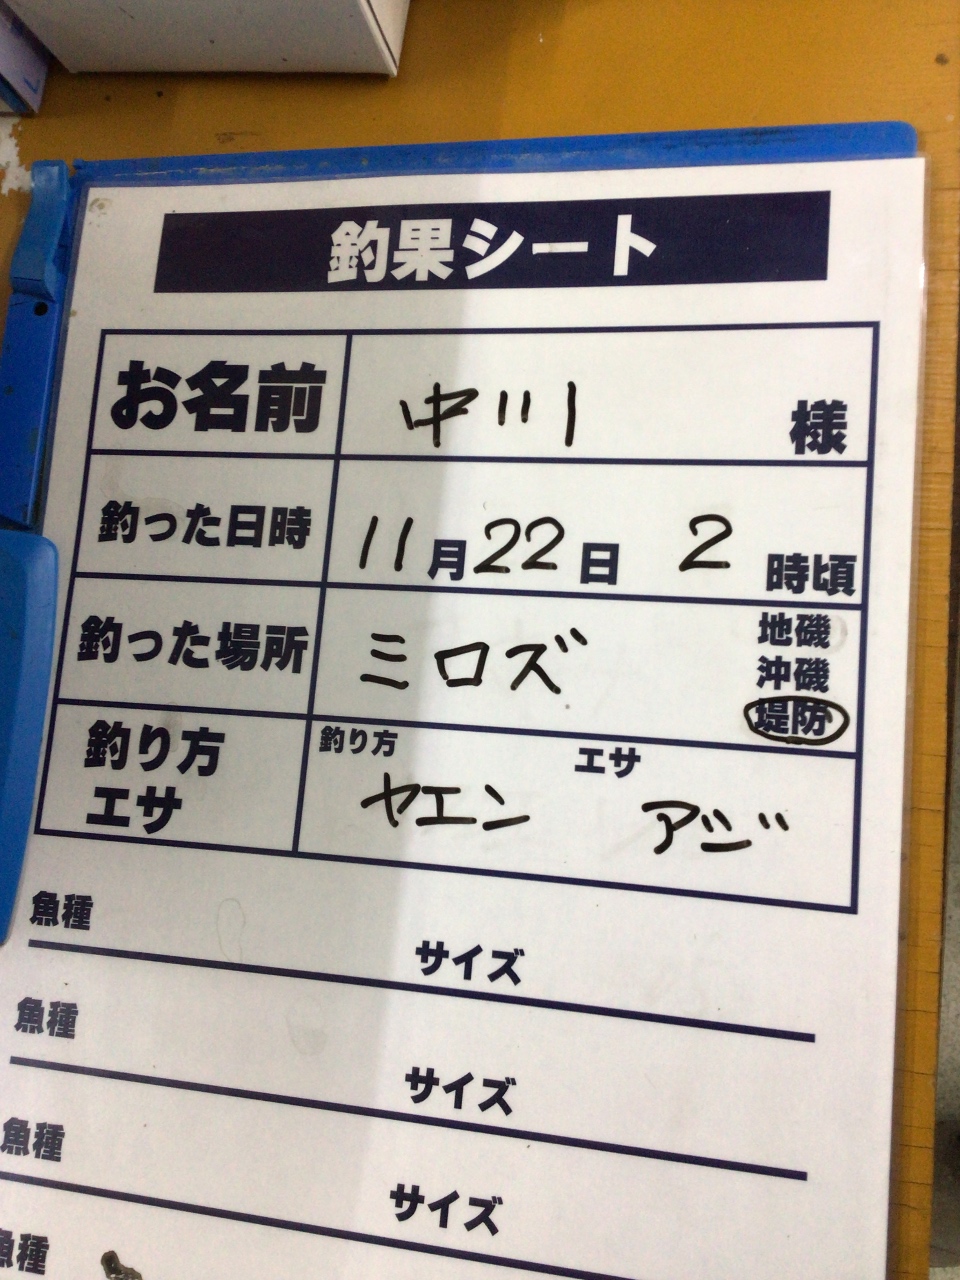 釣果シート
お名前 中川 様
釣った日時 11月22日 2時頃
釣った場所 ミロズ 地磯
沖磯
堤防
釣り方 釣り方 エサ
エサ ヤエン アジ
魚種 サイズ
魚種 サイズ
魚種 サイズ
魚種